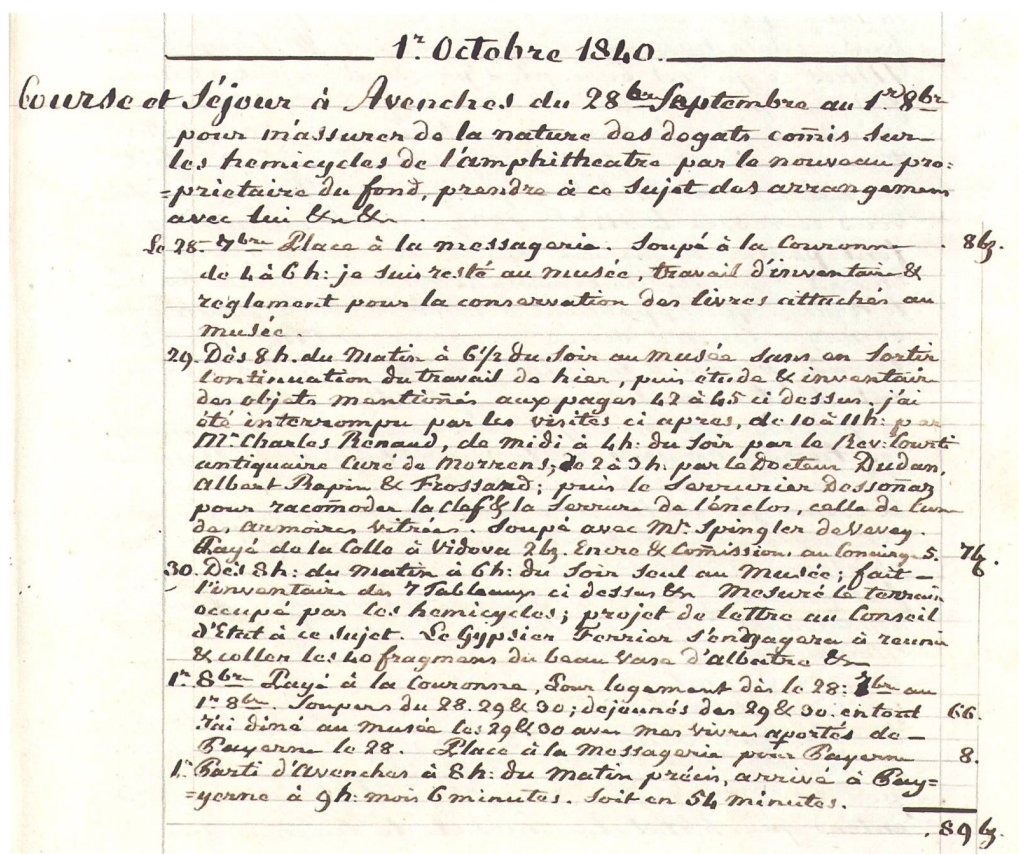 1.r Octobre 1840.
Course et Séjour à Avenches du 28 br Septembre au 1.r 8br
pour m'assurer de la nature des dogats com̃is sur
les hemicycles de l'amphitheatre par le nouveau pro=
=prietaire du fond, prendre à ce sujet des arrangemens
avec lui &c &c.
Le 28. 7bre Place à la messagerie. Soupé à la Couronne . 8 bz.
de 4 à 6 h: je suis resté au musée, travail d'inventaire &
reglement pour la conservation des livres attachés au
musée.
29. Dès 8 h. du Matin à 6 1/2 du Soir au musée sans en Sortir
Continuation du travail de hier, puis étude & inventaire
des objets mentioñés aux pages 42 à 45 ci dessus. j'ai
été interrompu par les visites ci apres, de 10 à 11 h: par
Mr Charles Renaud, de midi à 4 h: du Soir par le Rev: Courti
antiquaire Curé de Morrens; de 2 à 3 h. par le Docteur Dudan,
Albert Rapin & Frossard; puis le Serrurier Dessoñaz
pour racom̃oder la Clef & la Serrure de l'enclos, celle de l'une
des armoires vitrées. Soupé avec Mr. Spingler de Vevey.
Payé de la Colle à Vidova 2 bz. Encre & Com̃ission au Concierge 5. 7 bz.
30. Dès 8 h: du Matin à 6 h: du Soir Seul au Musée; fait
l'inventaire des 7 Tableaux ci dessus &c Mesuré le terrain
occupé par les hemicycles; projet de lettre au Conseil
d'Etat à ce sujet. Le Gypsier Ferrier s'endgagera à reunir
& coller les 40 fragmens du beau Vase d'albatre &c
1.r 8br Payé à la Couronne, Pour logement dès le 28: 7br au
1.r 8br. Soupers du 28. 29 & 30; dejeunés des 29 & 30. en tout 66.
J'ai diné au musée les 29 & 30 avec mes vivres aportés de
Payerne le 28. Place à la Messagerie pour Payerne 8.
1.r Parti d'Avenches à 8 h: du Matin précis, arrivé à Pay=
=yerne à 9 h: mois 6 minutes. Soit en 54 minutes.
. 89 bz.